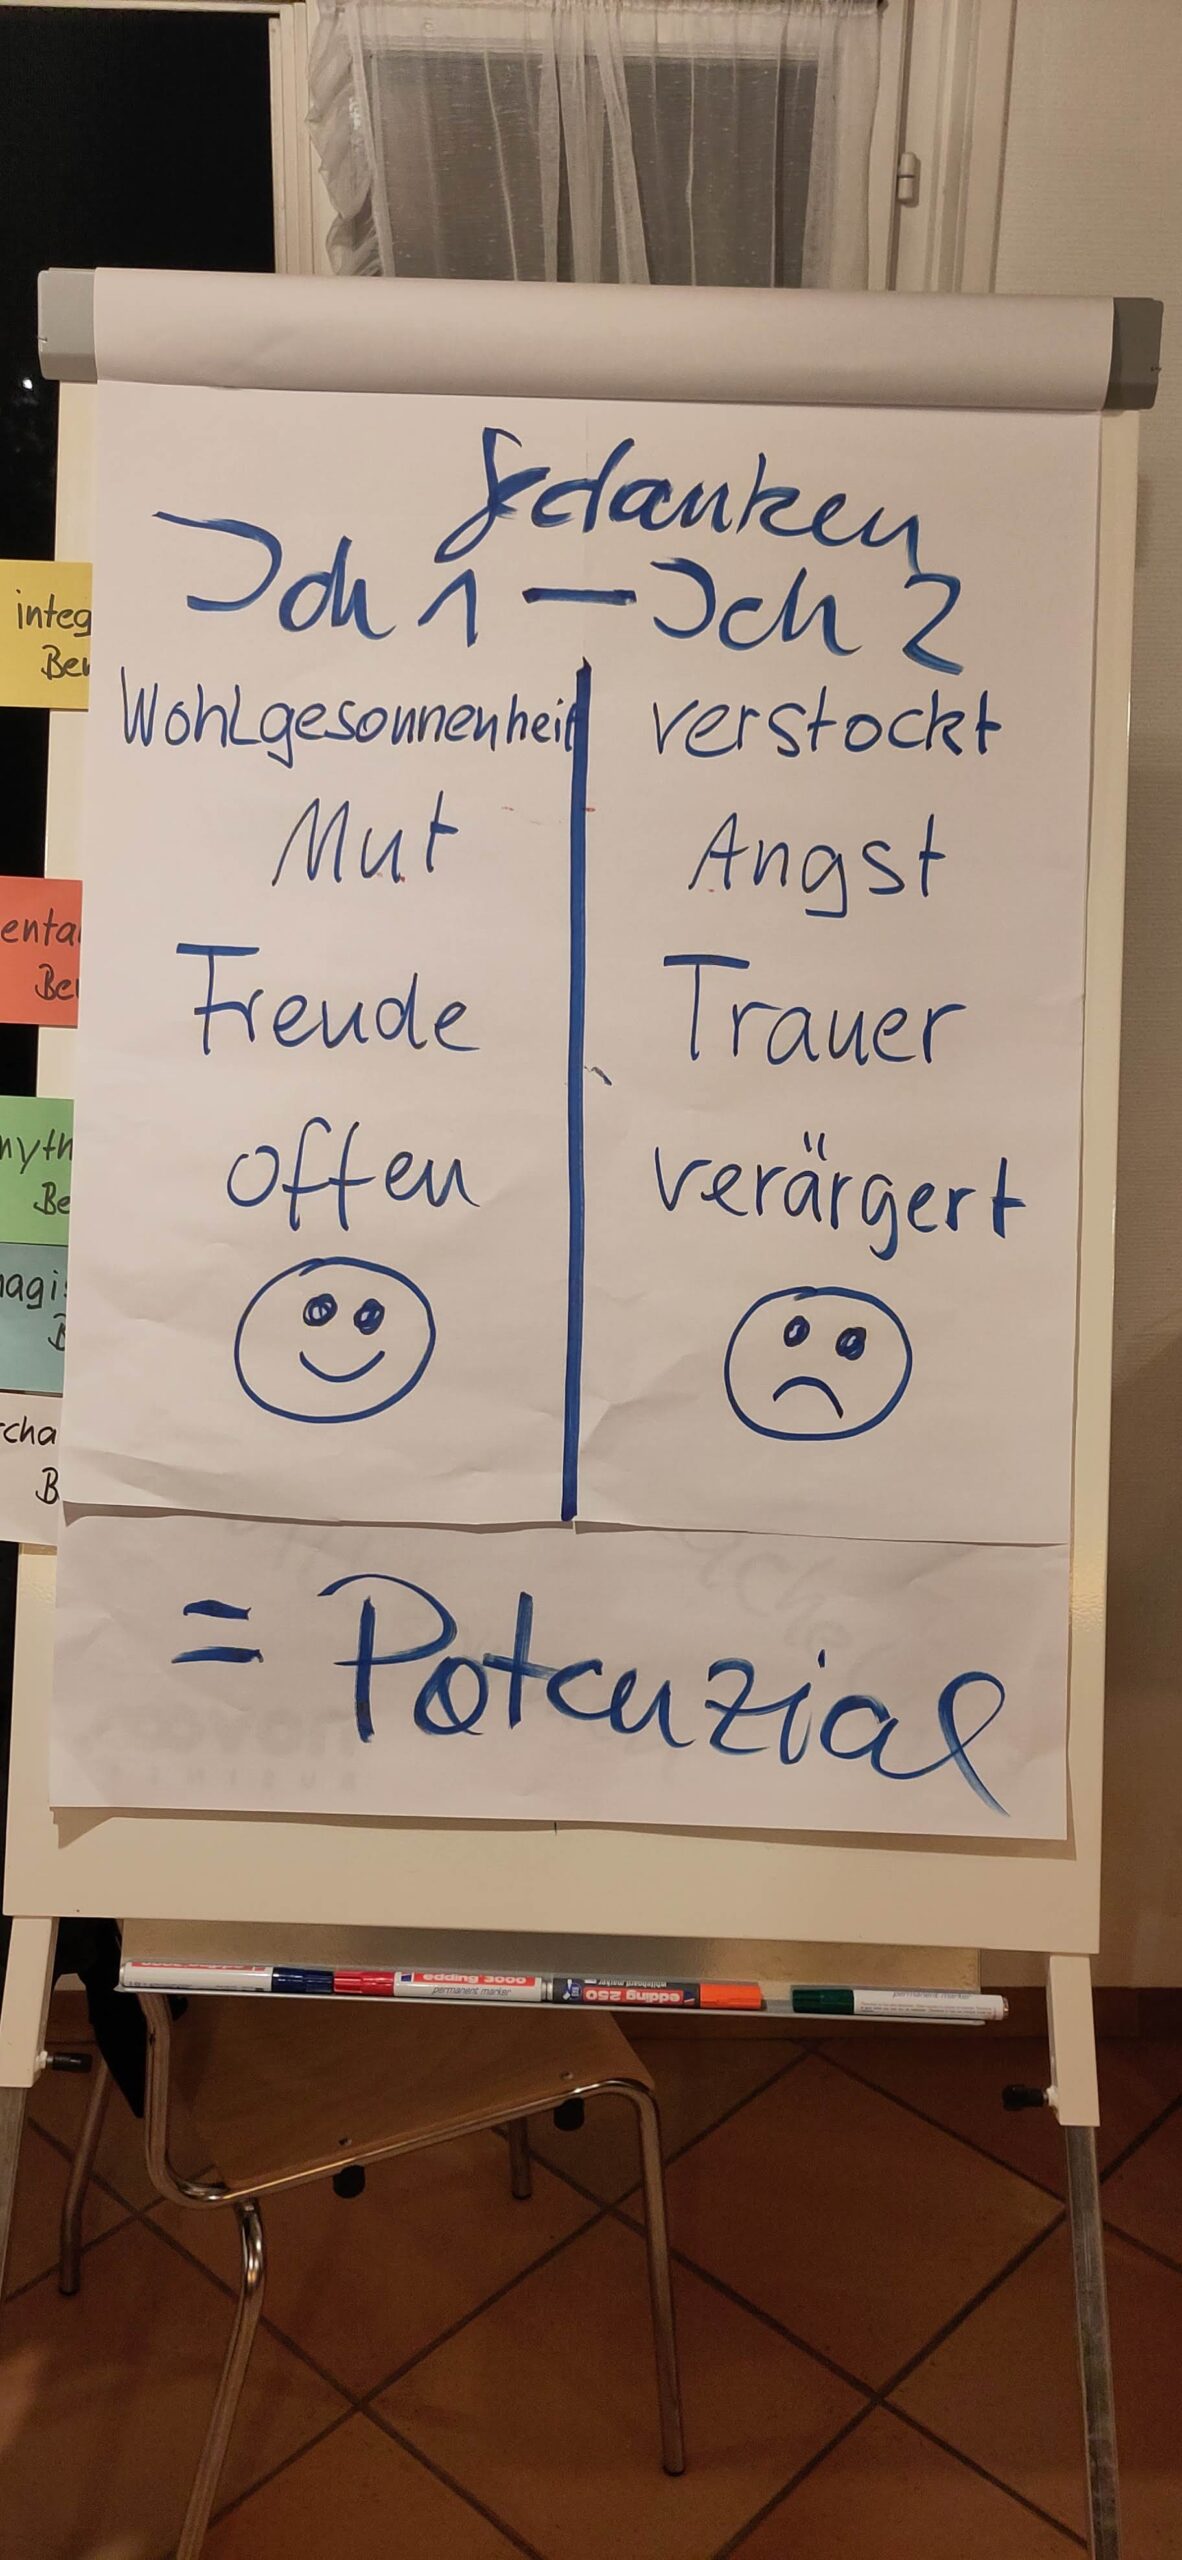 Gedanken
Ich 1 — Ich 2
Wohlgesonnenheit verstockt
Mut Angst
Freude Trauer
offen verärgert
= Potenzial
integ
Bew
enta
Be
myth
Be
magis
B
rcha
B
edding 3000
permanent marker
edding 250
whiteboard marker
permanent marker